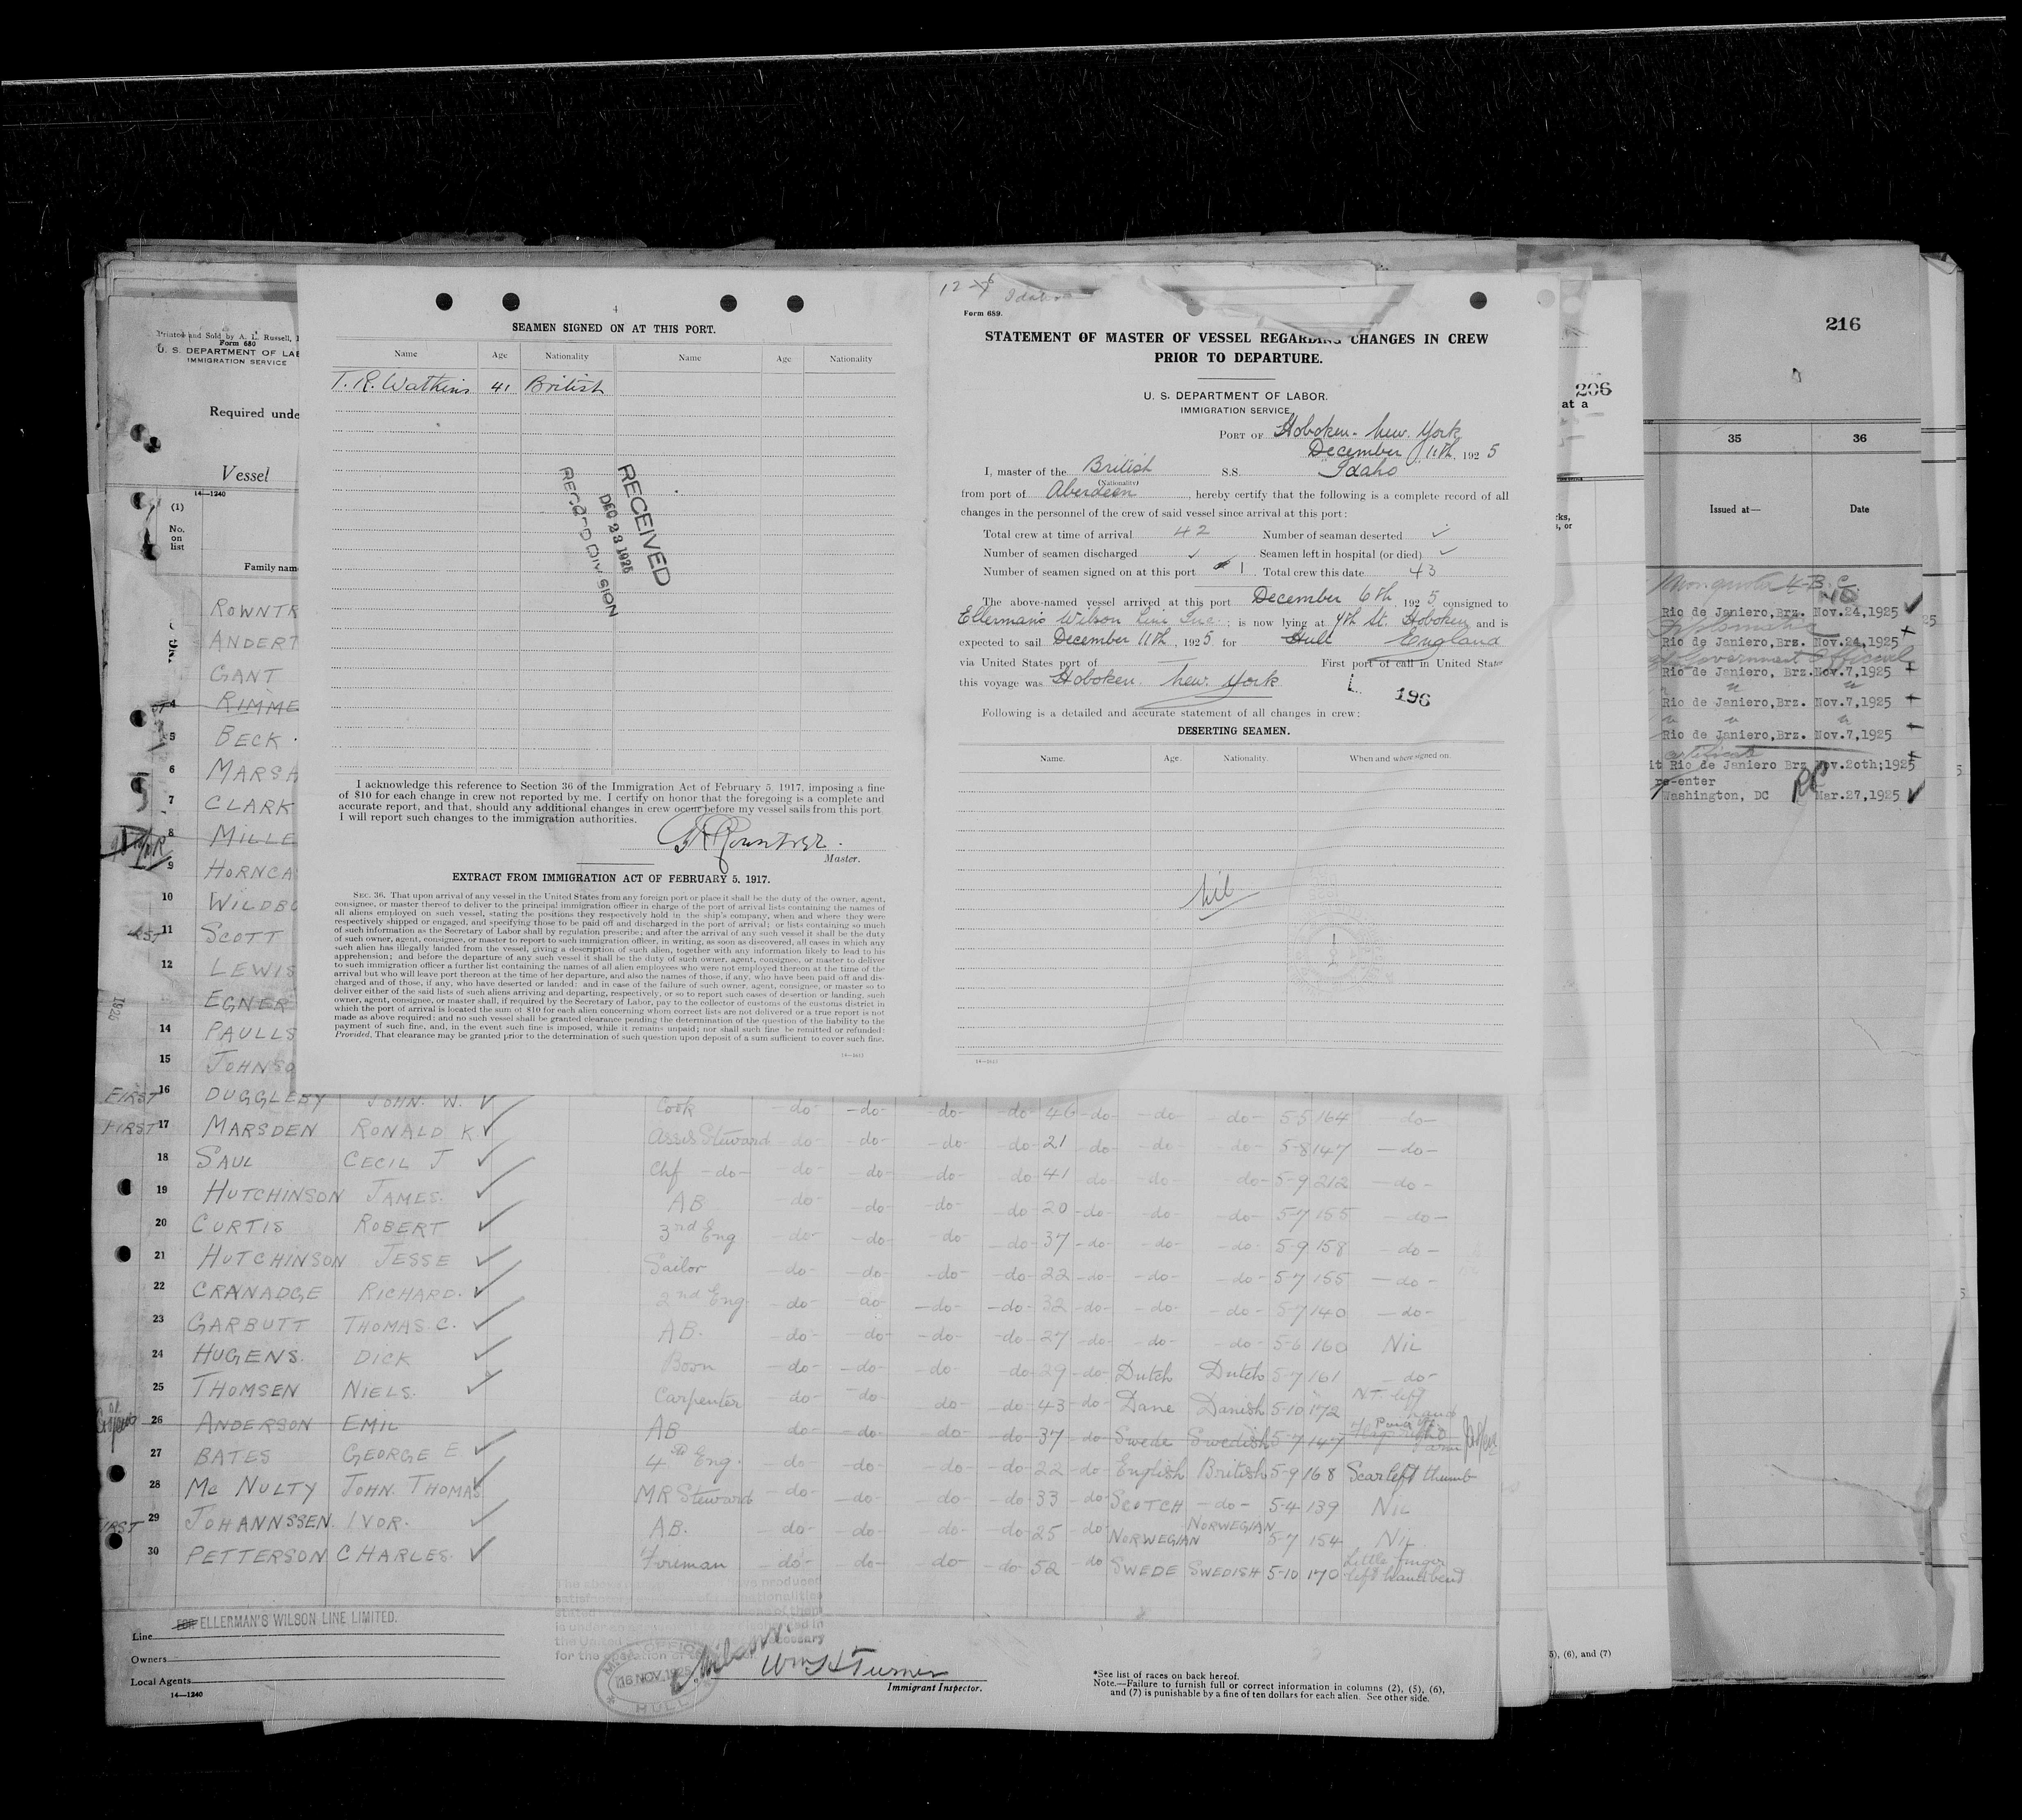 SEAMEN SIGNED ON AT THIS PORT.
Name Age Nationality Name Age Nationality
T. R. Watkins 41 British
RECEIVED
DEC 23 1925
RECORD DIVISION
I acknowledge this reference to Section 36 of the Immigration Act of February 5, 1917, imposing a fine
of $10 for each change in crew not reported by me. I certify on honor that the foregoing is a complete and
accurate report, and that, should any additional changes in crew occur before my vessel sails from this port
I will report such changes to the immigration authorities.
Master.
EXTRACT FROM IMMIGRATION ACT OF FEBRUARY 5, 1917.
SEC. 36. That upon arrival of any vessel in the United States from any foreign port or place it shall be the duty of the owner, agent,
consignee, or master thereof to deliver to the principal immigration officer in charge of the port of arrival lists containing the names of
all aliens employed on such vessel, stating the positions they respectively hold in the ship's company, when and where they were
respectively shipped or engaged, and specifying those to be paid off and discharged in the port of arrival; or lists containing so much
of such information as the Secretary of Labor shall by regulation prescribe; and after the arrival of any such vessel it shall be the duty
of such owner, agent, consignee, or master to report to such immigration officer, in writing, as soon as discovered, all cases in which any
such alien has illegally landed from the vessel, giving a description of such alien, together with any information likely to lead to his
apprehension; and before the departure of any such vessel it shall be the duty of such owner, agent, consignee, or master to deliver
to such immigration officer a further list containing the names of all alien employees who were not employed thereon at the time of the
arrival but who will leave port thereon at the time of her departure, and also the names of those, if any, who have been paid off and dis-
charged and of those, if any, who have deserted or landed; and in case of the failure of such owner, agent, consignee, or master so to
deliver either of the said lists of such aliens arriving and departing, respectively, or so to report such cases of desertion or landing, such
owner, agent, consignee, or master shall, if required by the Secretary of Labor, pay to the collector of customs of the customs district in
which the port of arrival is located the sum of $10 for each alien concerning whom correct lists are not delivered or a true report is not
made as above required; and no such vessel shall be granted clearance pending the determination of the question of the liability to the
payment of such fine, and, in the event such fine is imposed, while it remains unpaid; nor shall such fine be remitted or refunded:
Provided, That clearance may be granted prior to the determination of such question upon deposit of a sum sufficient to cover such fine.
Idaho
Form 689.
STATEMENT OF MASTER OF VESSEL REGARDING CHANGES IN CREW
PRIOR TO DEPARTURE.
U. S. DEPARTMENT OF LABOR.
IMMIGRATION SERVICE
PORT OF Hoboken - New. York
December 11th, 1925
I, master of the British S.S. Idaho
(Nationality)
from port of Aberdeen, hereby certify that the following is a complete record of all
changes in the personnel of the crew of said vessel since arrival at this port:
Total crew at time of arrival 42 Number of seaman deserted ✓
Number of seamen discharged ✓ Seamen left in hospital (or died) ✓
Number of seamen signed on at this port 1. Total crew this date 43
The above-named vessel arrived at this port December 6th, 1925 consigned to
Ellerman's Wilson Line Inc.; is now lying at 7th St. Hoboken and is
expected to sail December 11th, 1925 for Hull England
via United States port of First port of call in United States
this voyage was Hoboken. New. York
196
Following is a detailed and accurate statement of all changes in crew:
DESERTING SEAMEN.
Name. Age. Nationality. When and where signed on.
Nil
Printed and Sold by A. L. Russell,
Form 680
U. S. DEPARTMENT OF LAB
IMMIGRATION SERVICE
Required unde
Vessel
14—1240
(1)
No. on list
Family nam
ROWNTR
ANDERT
GANT
4 RIMME
5 BECK
6 MARSH
7 CLARK
8 MILLE
9 HORNCA
10 WILDBO
11 SCOTT
12 LEWIS
EGNER
14 PAULLS
15 JOHNSO
FIRST 16 DUGGLEBY JOHN. W. ✓ Cook -do- -do- -do- -do- 46 -do- -do- -do- 5-5 164 -do-
FIRST 17 MARSDEN RONALD K ✓ Asses Steward -do- -do- -do- -do- 21 -do- -do- -do- 5-8 147 -do-
18 SAUL CECIL J ✓ Chf -do- -do- -do- -do- -do- 41 -do- -do- -do- 5-9 212 -do-
19 HUTCHINSON JAMES. ✓ AB -do- -do- -do- -do- 20 -do- -do- -do- 5-7 155 -do-
20 CURTIS ROBERT ✓ 3rd Eng -do- -do- -do- -do- 37 -do- -do- -do- 5-9 158 -do-
21 HUTCHINSON JESSE ✓ Sailor -do- -do- -do- -do- 22 -do- -do- -do- 5-7 155 -do-
22 CRANADGE RICHARD. ✓ 2nd Eng. -do- -do- -do- -do- 32 -do- -do- -do- 5-7 140 -do-
23 GARBUTT THOMAS C. ✓ AB. -do- -do- -do- -do- 27 -do- -do- -do- 5-6 160 Nil
24 HUGENS. DICK ✓ Bosn -do- -do- -do- -do- 29 -do- Dutch Dutch 5-7 161 -do-
25 THOMSEN NIELS. ✓ Carpenter -do- -do- -do- -do- 43 -do- Dane Danish 5-10 172 N.T. left hand
26 ANDERSON EMIL AB -do- -do- -do- -do- 37 -do- Swede Swedish 5-7 147
27 BATES GEORGE E ✓ 4th Eng. -do- -do- -do- -do- 22 -do- English British 5-9 168 Scar left thumb
28 Mc NULTY JOHN. THOMAS ✓ MR Steward -do- -do- -do- -do- 33 -do- SCOTCH -do- 5-4 139 NIL
FIRST 29 JOHANNSSEN. IVOR. ✓ AB. -do- -do- -do- -do- 25 -do- NORWEGIAN NORWEGIAN 5-7 154 NIL
30 PETTERSON CHARLES. ✓ Foreman -do- -do- -do- -do- 52 -do SWEDE SWEDISH 5-10 170 Little finger left hand bent
Line FOR ELLERMAN'S WILSON LINE LIMITED.
Owners
Local Agents
14—1240
16 NOV. 1925
HULL
Wm H Turner
Immigrant Inspector.
*See list of races on back hereof.
Note.—Failure to furnish full or correct information in columns (2), (5), (6),
and (7) is punishable by a fine of ten dollars for each alien. See other side.
206
at a
5), (6), and (7)
216
35 36
Issued at— Date
Rio de Janiero,Brz. Nov.24,1925
Rio de Janiero,Brz. Nov.24,1925
Government Official
Rio de Janiero, Brz. Nov.7,1925
Rio de Janiero,Brz. Nov.7,1925
Rio de Janiero,Brz. Nov.7,1925
it Rio de Janiero Brz Nov.20th;1925
re-enter
Washington, DC Mar.27,1925